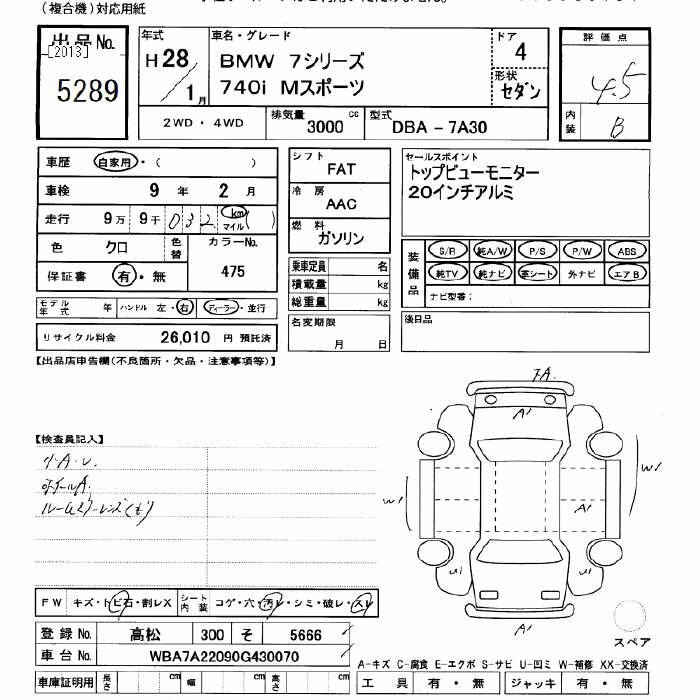 (複合機)対応用紙
出品No.
[2013]
5289
年式
H28/1月
車名・グレード
BMW 7シリーズ
740i Mスポーツ
ドア
4
形状
セダン
評価点
4.5
内装
B
2WD・4WD
排気量
3000 cc
型式
DBA-7A30
車歴 自家用・( )
車検 9 年 2 月
走行 9万 9千 032 km マイル ( )
色 クロ 色替 カラーNo.
475
保証書 有・無
モデル年式 年 ハンドル 左・右 ディーラー・並行
リサイクル料金 26,010 円 預託済
シフト
FAT
冷房
AAC
燃料
ガソリン
乗車定員 名
積載量 kg
総重量 kg
名変期限
月 日
セールスポイント
トップビューモニター
20インチアルミ
装備品
S/R 純A/W P/S P/W ABS
純TV 純ナビ 革シート 外ナビ エアB
ナビ型番:
後日品
【出品店申告欄(不良箇所・欠品・注意事項等)】
【検査員記入】
小A.U
ホイールA.
ルームミラーレンズ(モ)
FW キズ・トビ石・割レX シート内装 コゲ・穴・汚レ・シミ・破レ・スレ
登録No. 高松 300 そ 5666
車台No. WBA7A22090G430070
車庫証明用 長さ cm 幅 cm 高さ cm
A1
W1
W1
A1
U1
U1
A1
スペア
A-キズ C-腐食 E-エクボ S-サビ U-凹ミ W-補修 XX-交換済
工具 有・無 ジャッキ 有・無